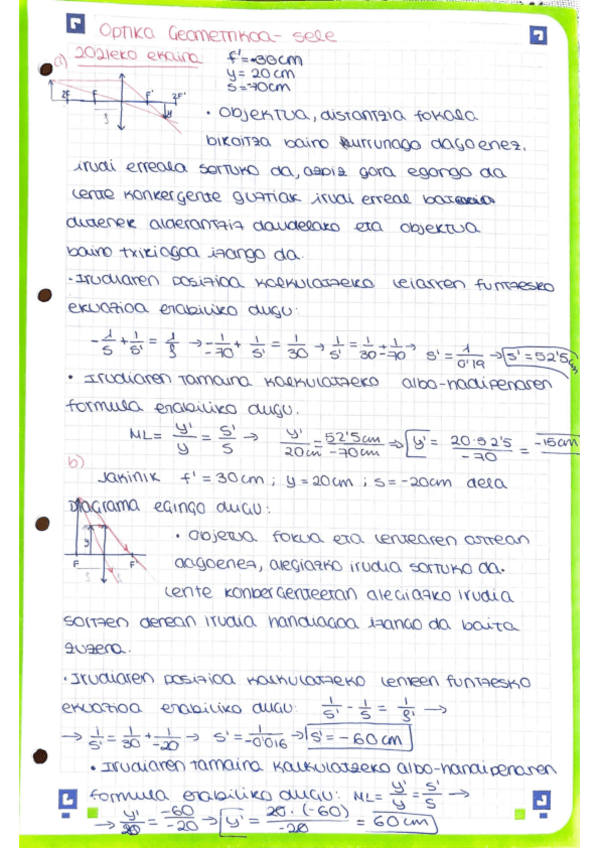 OPTIKA GEOMETRIKOA - SELE
a) 2021eko EKAINA
f' = 30cm
y = 20cm
s = -70cm
2F F F' 2F' y
• OBJEKTUA, DISTANTZIA FOKALA
BIKOITZA BAINO URRUNAGO DAGOENEZ,
IRUDI ERREALA SORTUKO DA, AZPIZ GORA EGONGO DA
LENTE KONBERGENTE GUZTIAK IRUDI ERREAL
DUTENEK ALDERANTZIZ DAUDELAKO ETA OBJEKTUA
BAINO TXIKIAGOA IZANGO DA.
• IRUDIAREN POSIZIOA KALKULATZEKO LEIARREN FUNTZESKO
EKUAZIOA ERABILIKO DUGU:
-1/s + 1/s' = 1/f → -1/-70 + 1/s' = 1/30 → 1/s' = 1/30 + 1/-70 → s' = 1/0'19 → s' = 52'5cm
• IRUDIAREN TAMAINA KALKULATZEKO ALBO-HANDIPENAREN
FORMULA ERABILIKO DUGU.
ML = y'/y = s'/s → y'/20cm = 52'5cm/-70cm ⇒ y' = 20·52'5/-70 = -15cm
b)
JAKINIK f' = 30cm ; y = 20cm ; s = -20cm DELA
DIAGRAMA EGINGO DUGU:
F y F'
• OBJETUA FOKUA ETA LENTEAREN ARTEAN
DAGOENEZ, ALEGIAZKO IRUDIA SORTUKO DA.
LENTE KONBERGENTEETAN ALEGIAZKO IRUDIA
SORTZEN DENEAN IRUDIA HANDIAGOA IZANGO DA BAITA
ZUZENA.
• IRUDIAREN POSIZIOA KALKULATZEKO LENTEEN FUNTZESKO
EKUAZIOA ERABILIKO DUGU: 1/s' - 1/s = 1/f' →
→ 1/s' = 1/30 + 1/-20 → s' = 1/-0'016 → s' = -60cm
• IRUDIAREN TAMAINA KALKULATZEKO ALBO-HANDIPENAREN
FORMULA ERABILIKO DUGU: ML = y'/y = s'/s →
→ y'/20 = -60/-20 → y' = 20·(-60)/-20 = 60cm